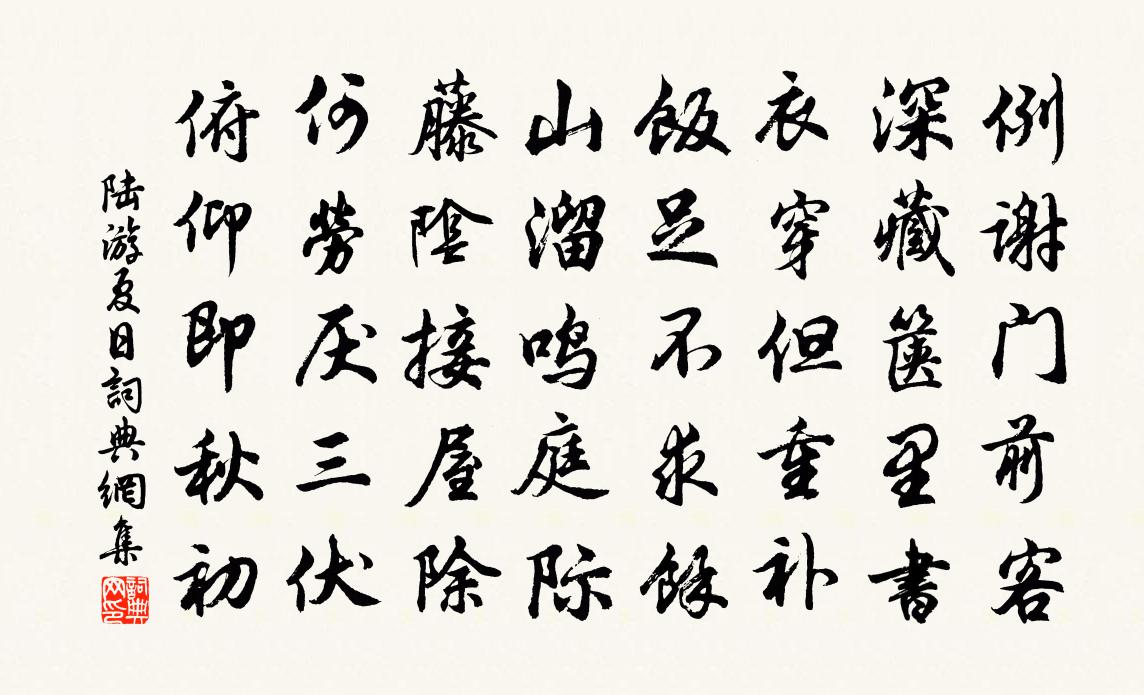 例谢门前客
深藏箧里書
衣穿但重补
飯足不求餘
山溜鸣庭际
藤陰接屋除
何劳厌三伏
俯仰即秋初
陆游夏日詞典網集
詞典网印